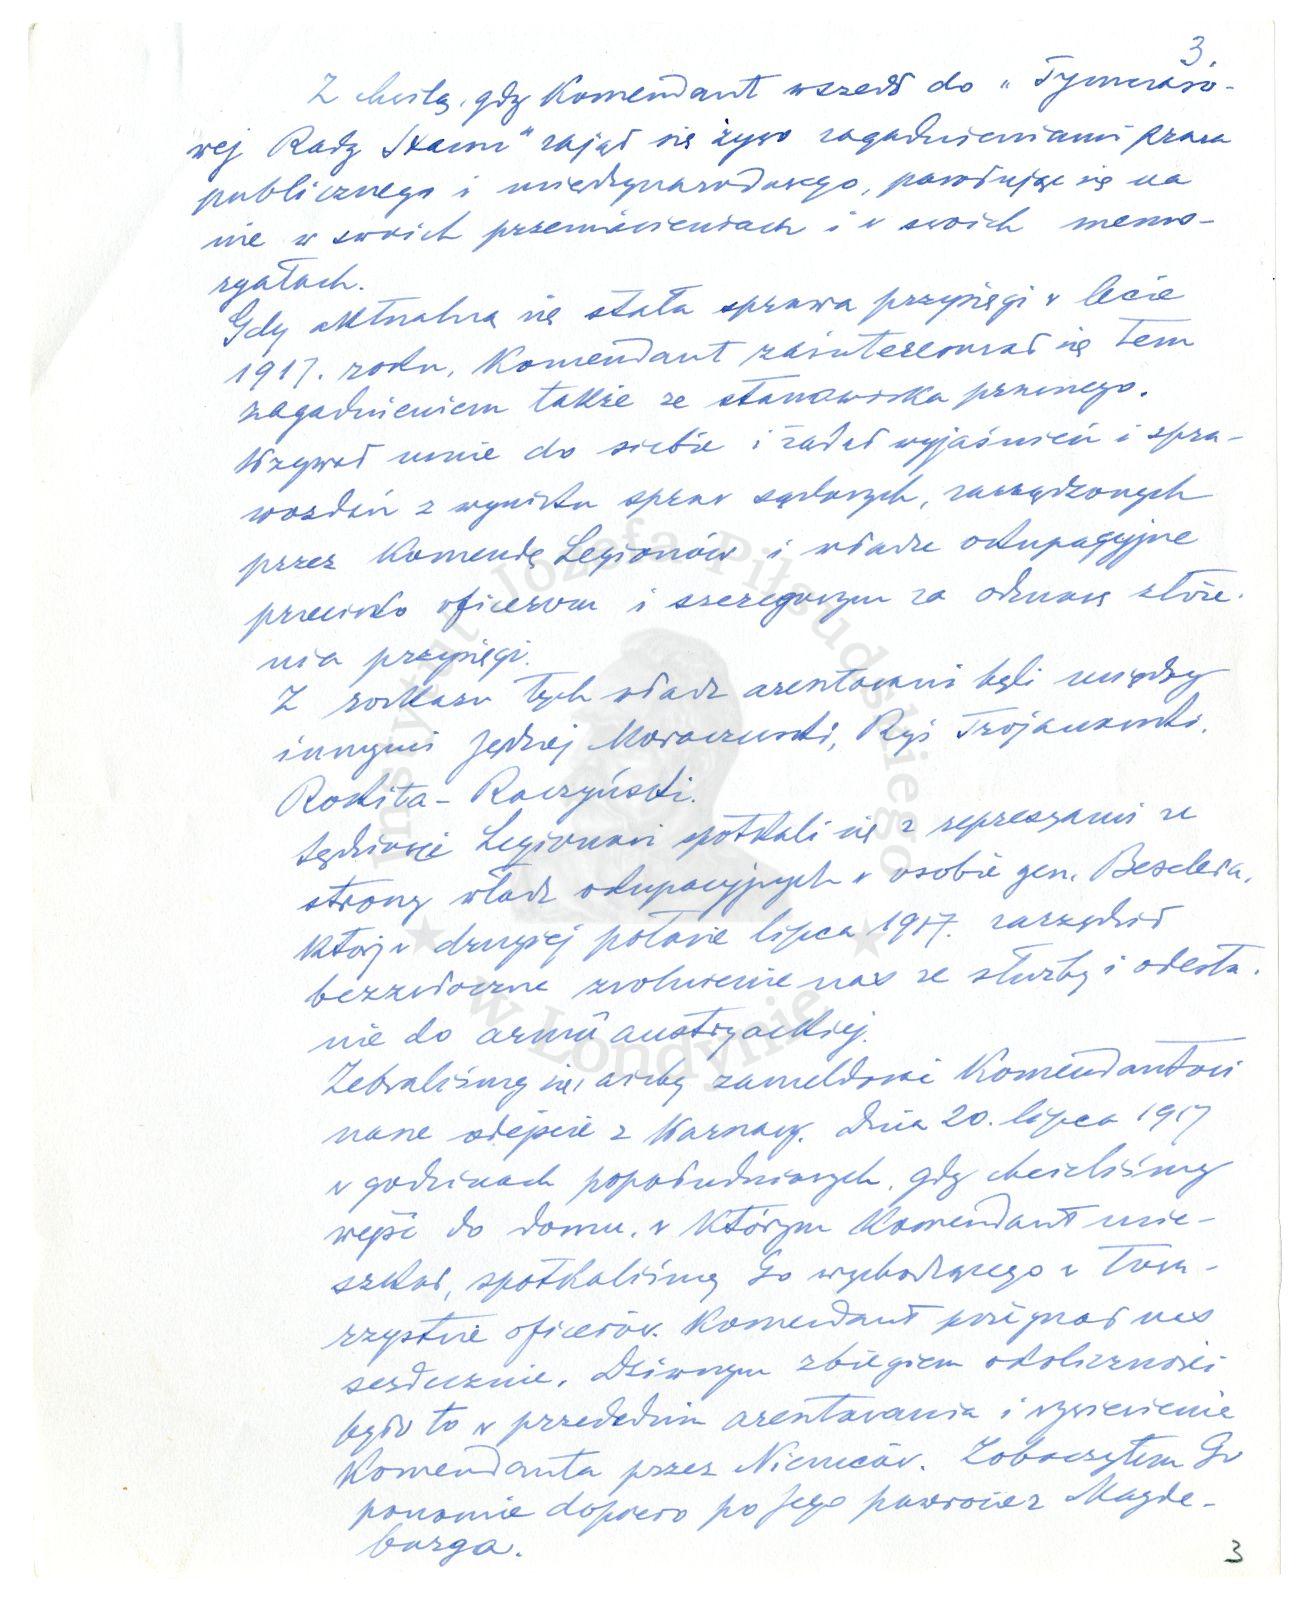 3
Z chwilą, gdy Komendant wszedł do „Tymczaso-
wej Rady Stanu" zajął się żywo zagadnieniami prawa
publicznego i międzynarodowego, powołując się na
nie w swoich przemówieniach i w swoich memo-
ryałach.
Gdy aktualną się stała sprawa przysięgi w lecie
1917. roku, Komendant zainteresował się tem
zagadnieniem także ze stanowiska prawnego.
Wzywał mnie do siebie i żądał wyjaśnień i spra-
wozdań z wyniku spraw sądowych, zarządzonych
przez Komendę Legionów i władze okupacyjne
przeciwko oficerom i szeregowym za odmowę złoże-
nia przysięgi.
Z rozkazu tych władz aresztowani byli między
innymi Jędrzej Moraczewski, Ryś Trojanowski,
Rokita-Raczyński.
Sędziowie Legionowi spotkali się z represyami ze
strony władz okupacyjnych w osobie gen. Beselera,
który w drugiej połowie lipca 1917. zarządził
bezzwłoczne zwolnienie nas ze służby i odesła-
nie do armii austryackiej.
Zebraliśmy się, ażeby zameldować Komendantowi
nasze odejście z Warszawy. Dnia 20. lipca 1917
w godzinach popołudniowych, gdy chcieliśmy
wejść do domu, w którym Komendant mie-
szkał, spotkaliśmy Go wychodzącego w towa-
rzystwie oficerów. Komendant pożegnał nas
serdecznie. Dziwnym zbiegiem okoliczności
było to w przededniu aresztowania i wywiezienie
Komendanta przez Niemców. Zobaczyłem Go
ponownie dopiero po Jego powrocie z Magde-
burga.
3
Instytut Józefa Piłsudskiego
w Londynie